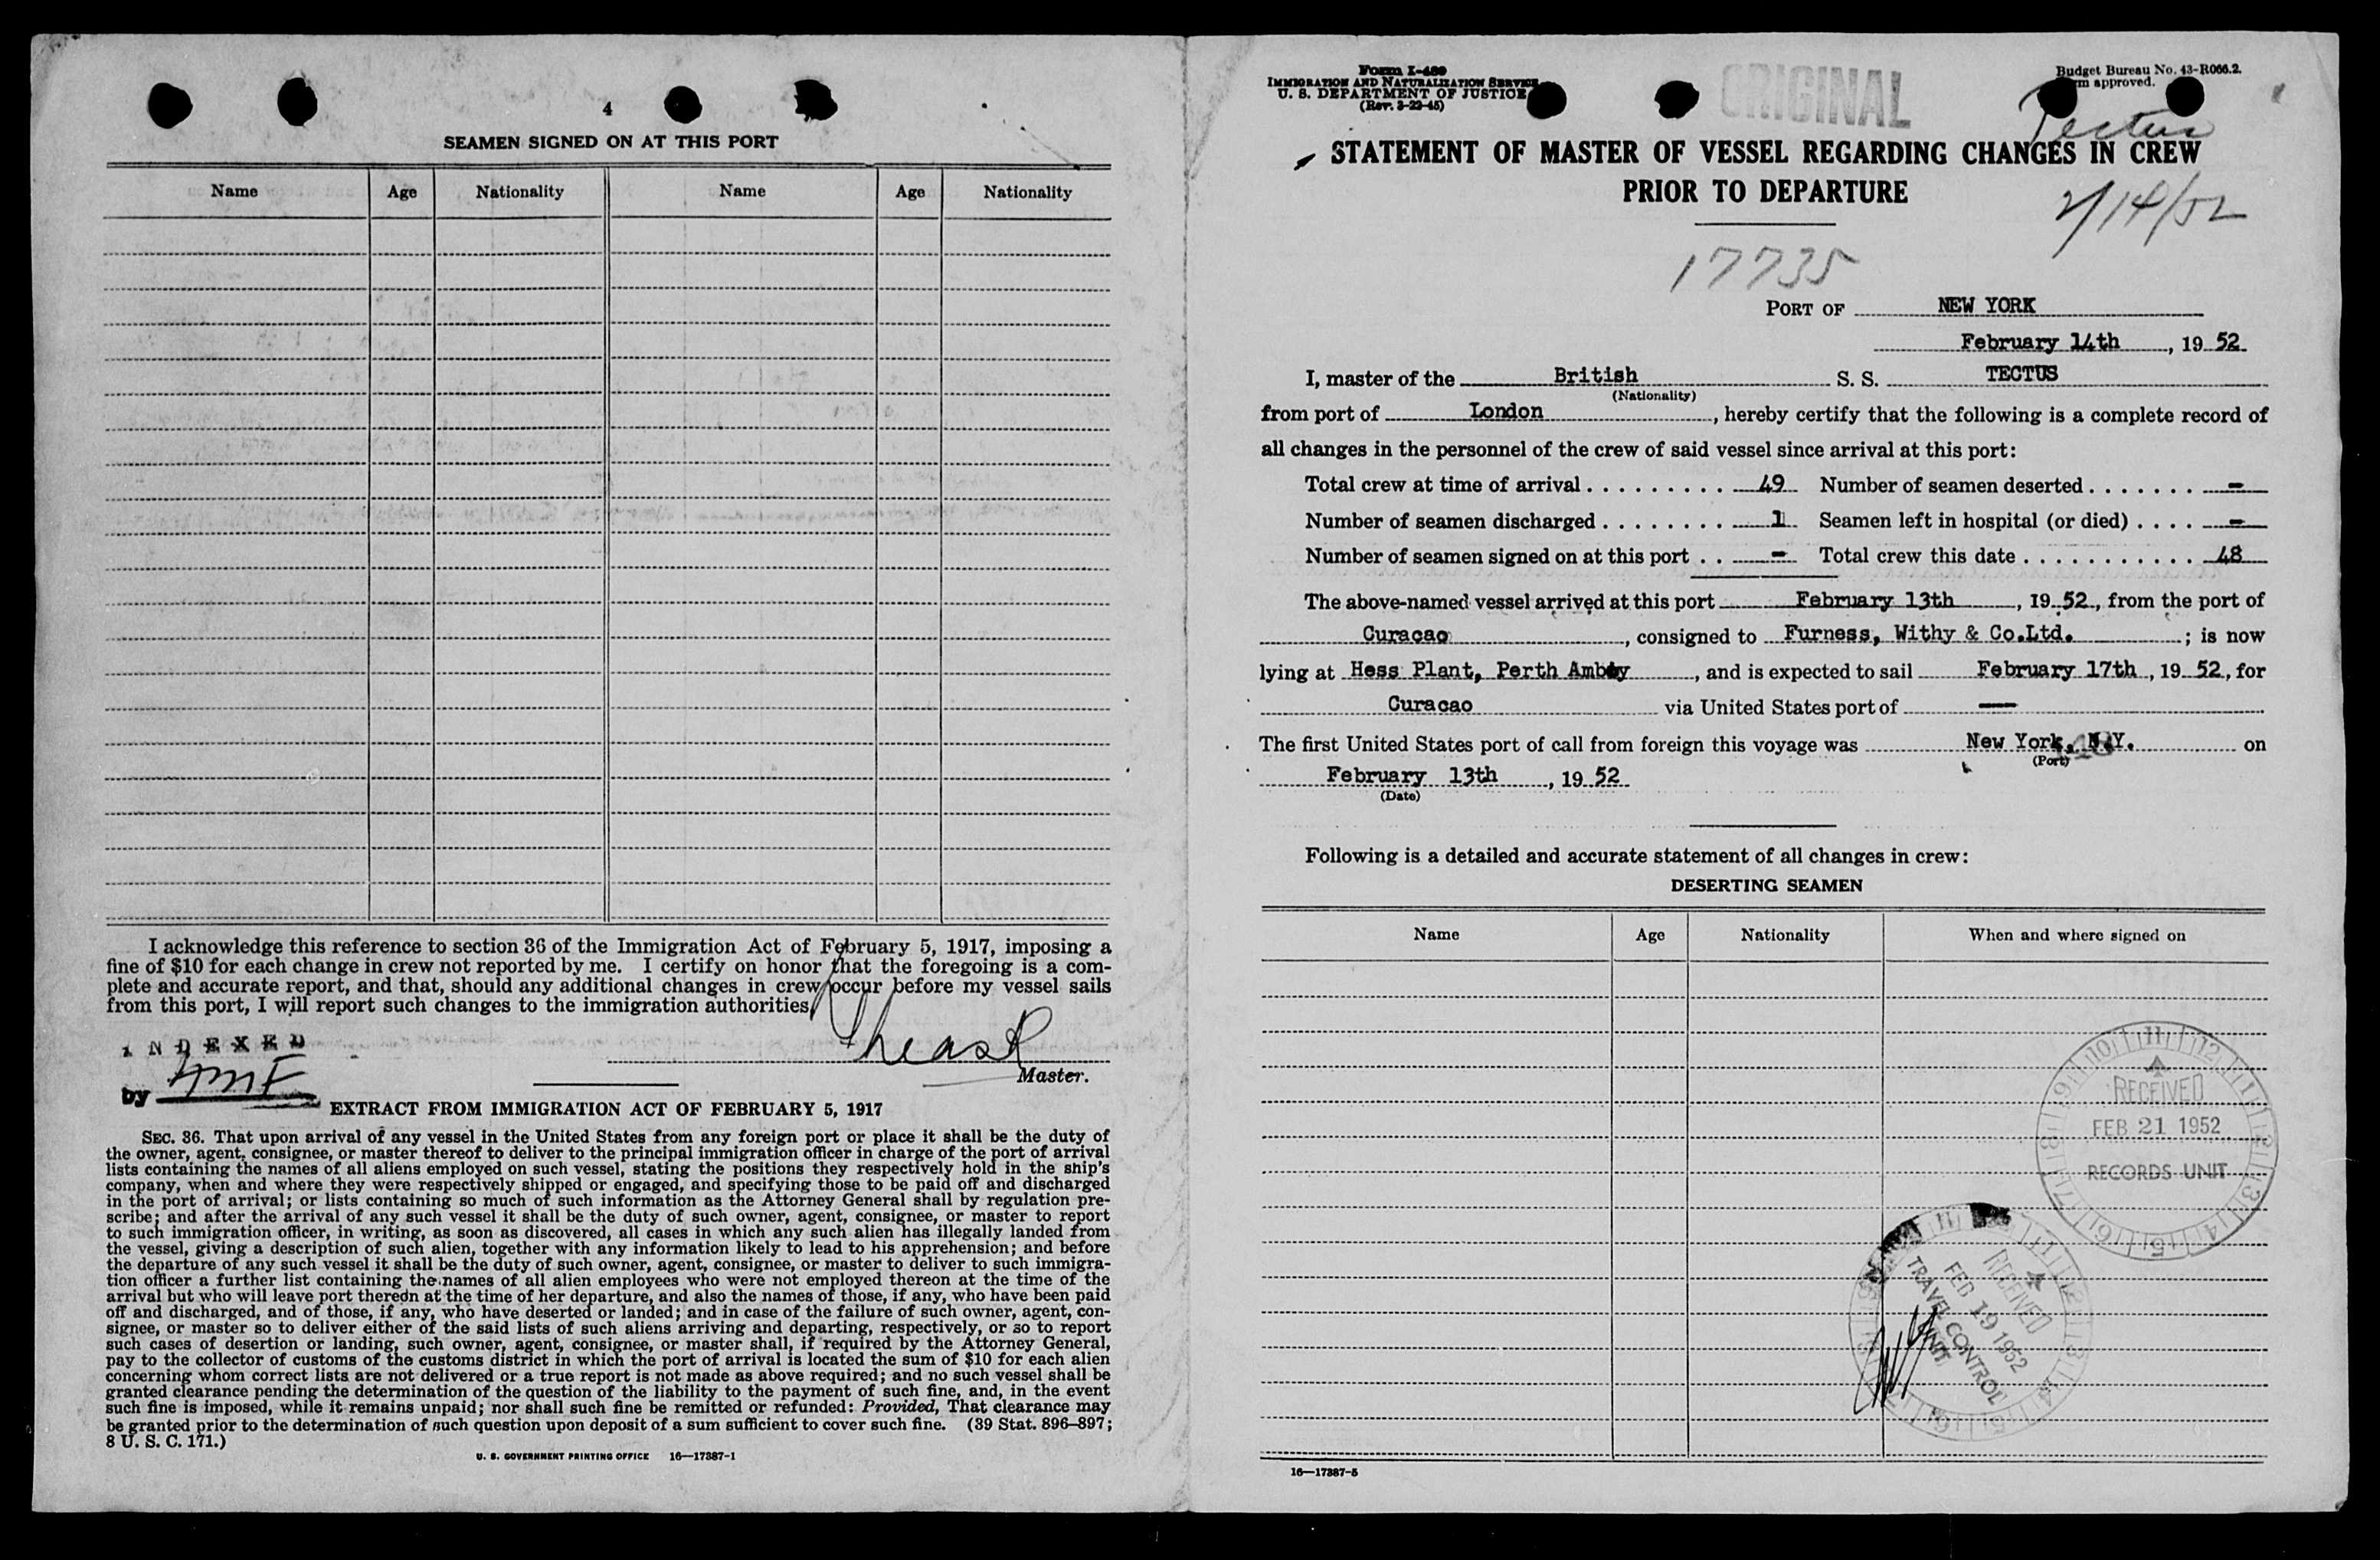 4
SEAMEN SIGNED ON AT THIS PORT
Name Age Nationality Name Age Nationality
I acknowledge this reference to section 36 of the Immigration Act of February 5, 1917, imposing a
fine of $10 for each change in crew not reported by me. I certify on honor that the foregoing is a com-
plete and accurate report, and that, should any additional changes in crew occur before my vessel sails
from this port, I will report such changes to the immigration authorities.
INDEXED
Master.
by
EXTRACT FROM IMMIGRATION ACT OF FEBRUARY 5, 1917
SEC. 36. That upon arrival of any vessel in the United States from any foreign port or place it shall be the duty of
the owner, agent, consignee, or master thereof to deliver to the principal immigration officer in charge of the port of arrival
lists containing the names of all aliens employed on such vessel, stating the positions they respectively hold in the ship's
company, when and where they were respectively shipped or engaged, and specifying those to be paid off and discharged
in the port of arrival; or lists containing so much of such information as the Attorney General shall by regulation pre-
scribe; and after the arrival of any such vessel it shall be the duty of such owner, agent, consignee, or master to report
to such immigration officer, in writing, as soon as discovered, all cases in which any such alien has illegally landed from
the vessel, giving a description of such alien, together with any information likely to lead to his apprehension; and before
the departure of any such vessel it shall be the duty of such owner, agent, consignee, or master to deliver to such immigra-
tion officer a further list containing the names of all alien employees who were not employed thereon at the time of the
arrival but who will leave port thereon at the time of her departure, and also the names of those, if any, who have been paid
off and discharged, and of those, if any, who have deserted or landed; and in case of the failure of such owner, agent, con-
signee, or master so to deliver either of the said lists of such aliens arriving and departing, respectively, or so to report
such cases of desertion or landing, such owner, agent, consignee, or master shall, if required by the Attorney General,
pay to the collector of customs of the customs district in which the port of arrival is located the sum of $10 for each alien
concerning whom correct lists are not delivered or a true report is not made as above required; and no such vessel shall be
granted clearance pending the determination of the question of the liability to the payment of such fine, and, in the event
such fine is imposed, while it remains unpaid; nor shall such fine be remitted or refunded: Provided, That clearance may
be granted prior to the determination of such question upon deposit of a sum sufficient to cover such fine. (39 Stat. 896–897;
8 U. S. C. 171.)
U. S. GOVERNMENT PRINTING OFFICE 16—17387-1
Form I-489
IMMIGRATION AND NATURALIZATION SERVICE
U. S. DEPARTMENT OF JUSTICE
(Rev. 3-22-45)
ORIGINAL
Budget Bureau No. 43-R066.2.
approved.
Tectus
STATEMENT OF MASTER OF VESSEL REGARDING CHANGES IN CREW
PRIOR TO DEPARTURE
2/14/52
17735
PORT OF NEW YORK
February 14th, 19 52
I, master of the British S. S. TECTUS
(Nationality)
from port of London, hereby certify that the following is a complete record of
all changes in the personnel of the crew of said vessel since arrival at this port:
Total crew at time of arrival . . . . . . . . . . 49 Number of seamen deserted . . . . . . . -
Number of seamen discharged . . . . . . . . . 1 Seamen left in hospital (or died) . . . . -
Number of seamen signed on at this port . . - Total crew this date . . . . . . . . . . . . 48
The above-named vessel arrived at this port February 13th, 19 52, from the port of
Curacao, consigned to Furness, Withy & Co.Ltd. ; is now
lying at Hess Plant, Perth Amboy, and is expected to sail February 17th, 19 52, for
Curacao via United States port of —
The first United States port of call from foreign this voyage was New York, N.Y. on
(Port)
48
February 13th, 19 52
(Date)
Following is a detailed and accurate statement of all changes in crew:
DESERTING SEAMEN
Name Age Nationality When and where signed on
9 10 11 12 1 2 3 4 5 6 7 8
RECEIVED
FEB 21 1952
RECORDS UNIT
RECEIVED
FEB 19 1952
TRAVEL CONTROL
UNIT
16—17387-5